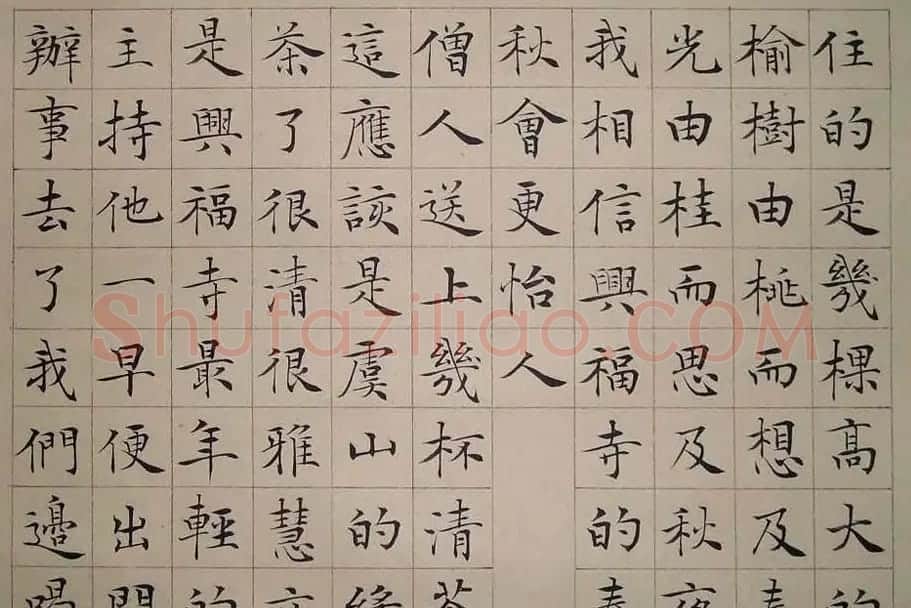 住的是幾棵高大的
榆樹由桃而想及春
光由桂而思及秋夜
我相信興福寺的春
秋會更怡人
僧人送上幾杯清茶
這應該是虞山的綠
茶了很清很雅慧文
是興福寺最年輕的
主持他一早便出門
辦事去了我們邊喝
Shufaziliao.COM